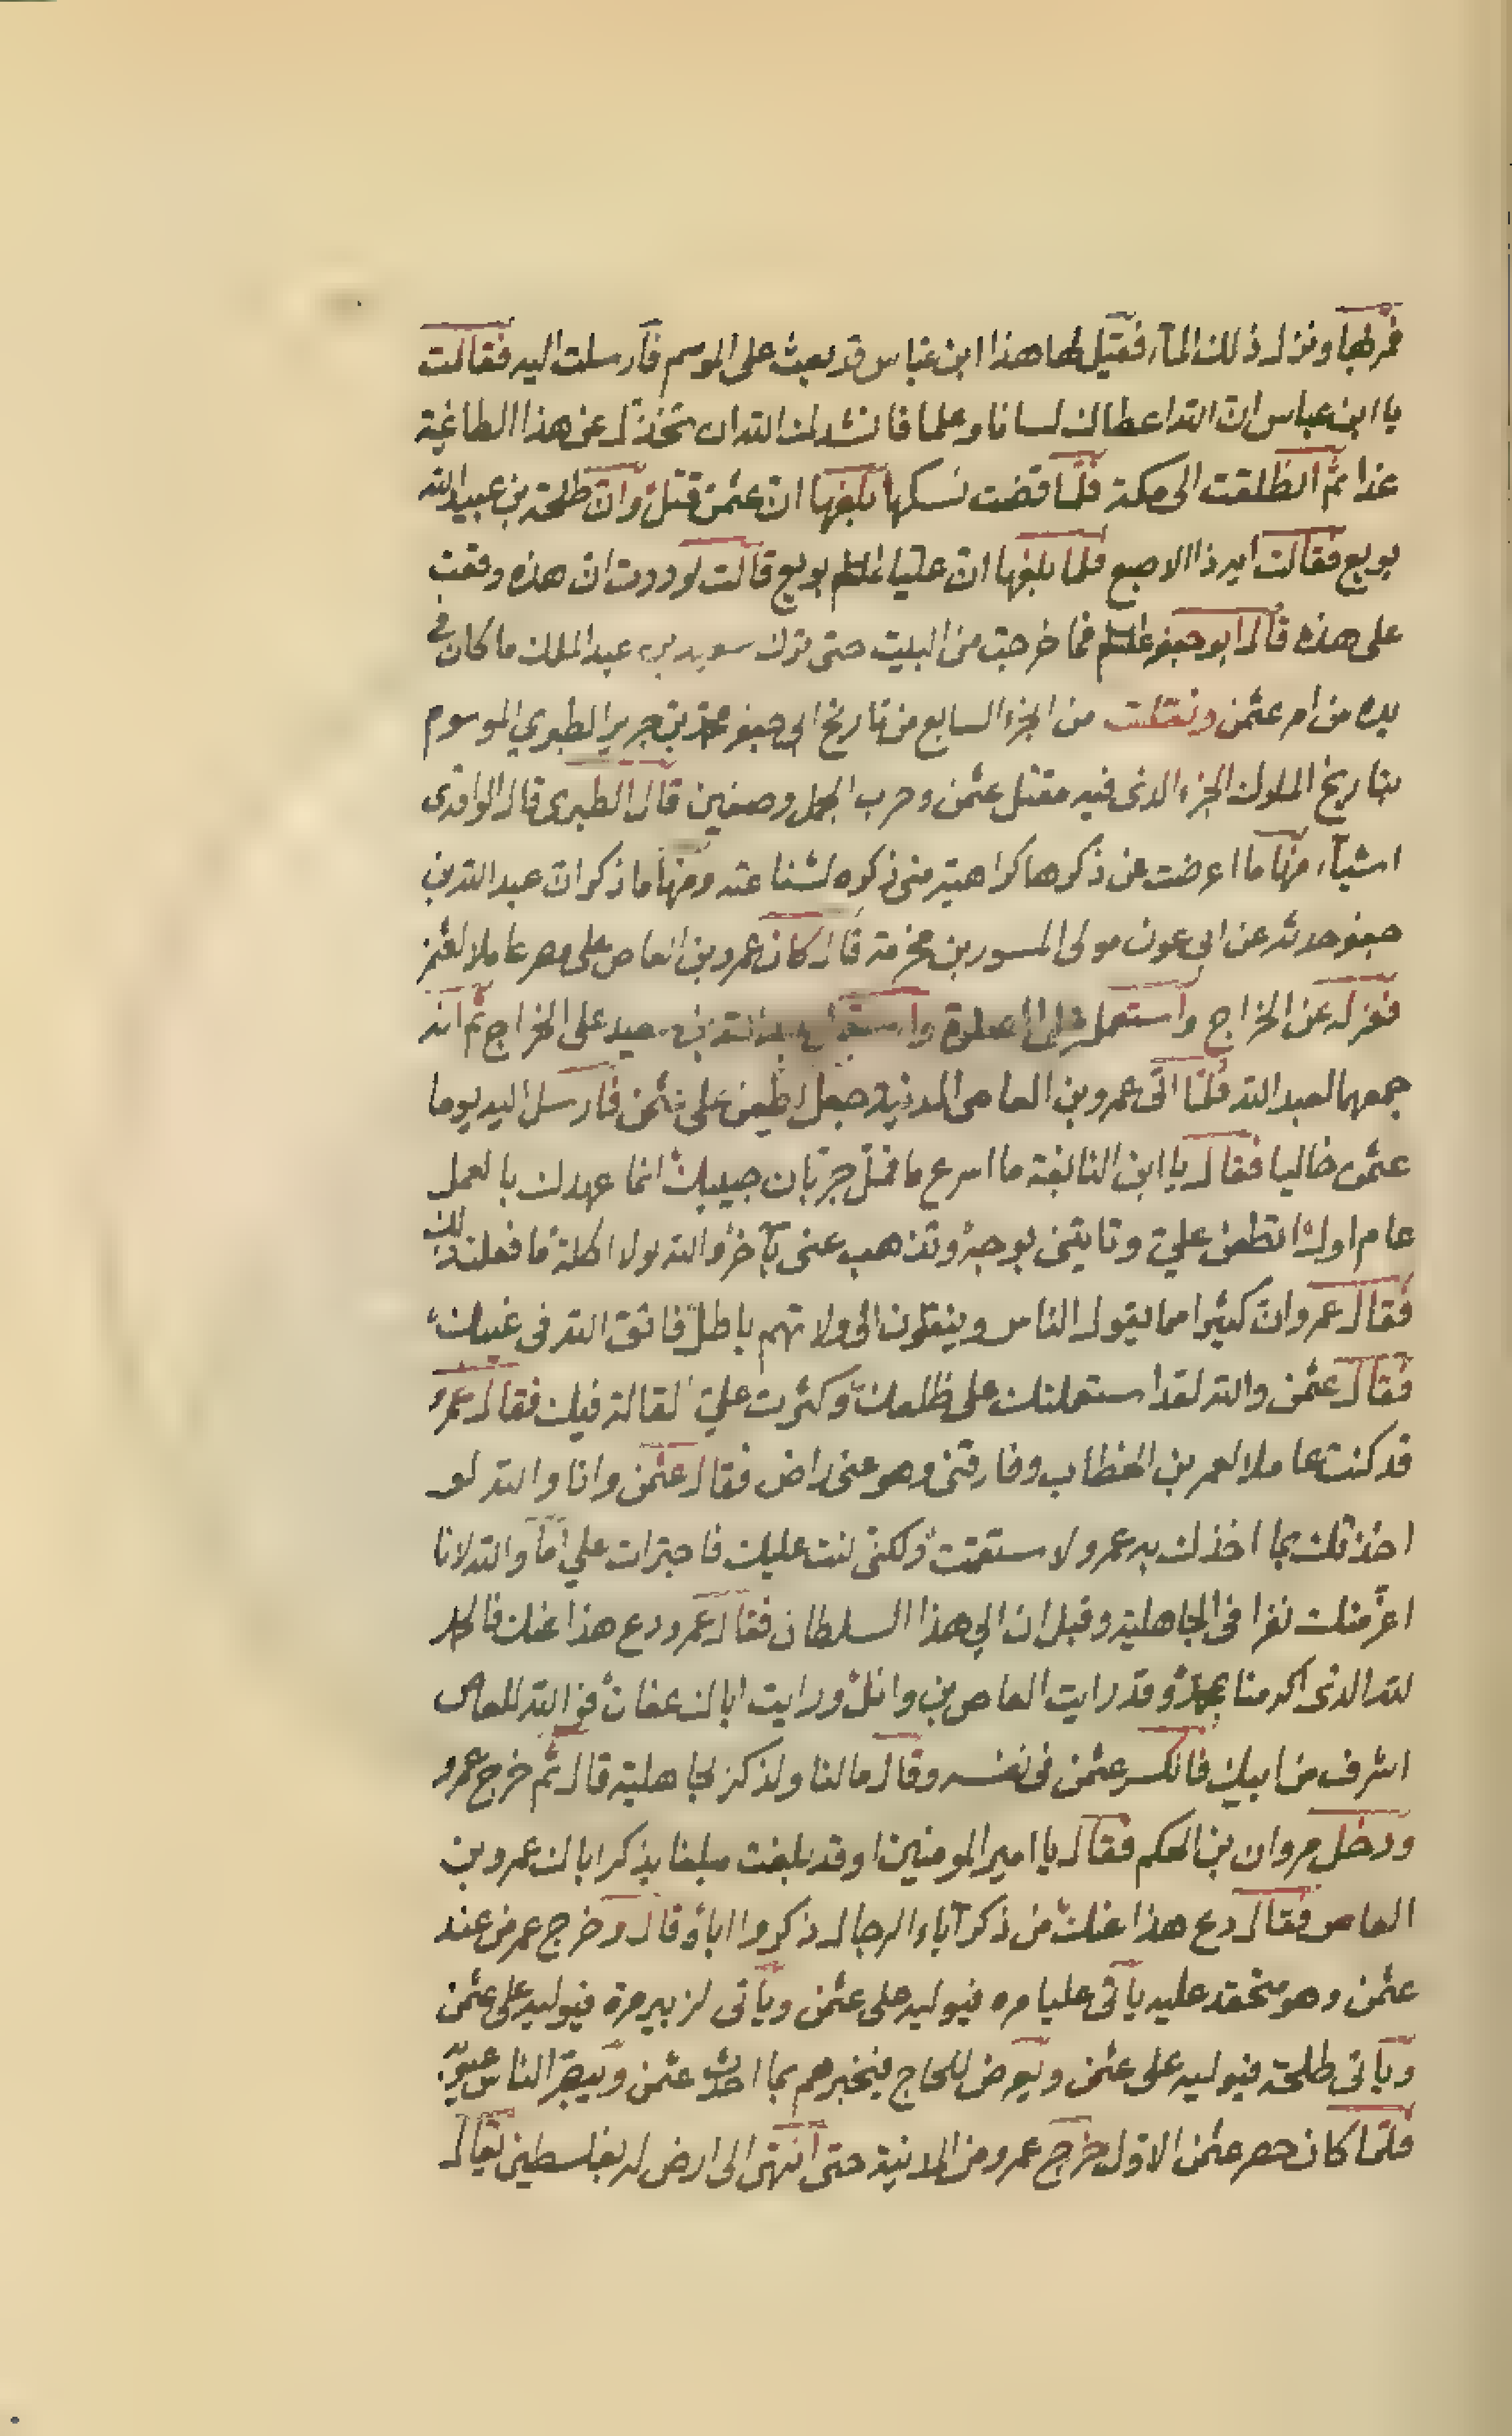 فمر بها ونزل ذلك المآء فقيل لها هذا ابن عباس قد بعث على الموسم فارسلت اليه فقالت
يا ابن عباس ان الله اعطاك لسانا وعلما فانشدك الله ان تخذل عن هذا الطاغية
غدا ثم انطلقت الى مكة فلما قضت نسكها بلغها ان عثمن قتل وان طلحة بن عبيد الله
بويع فقالت ايه ذا الاصبع فلما بلغها ان عليا بويع قالت لوددت ان هذه وقعت
على هذه قال ابو جعفر فما خرجت من البيت حتى ترك سويد بن عبد الملك ما كان في
يده من امر عثمن ونقلت من الجزء السابع من تاريخ ابي جعفر محمد بن جرير الطبري الموسوم
بتاريخ الملوك الجزء الذي فيه مقتل عثمن وحرب الجمل وصفين قال الطبري قال الواقدي
اشيآء منها ما اعرضت عن ذكرها كراهية مني ذكره لشناعته ومنها ما ذكر ان عبد الله بن
جعفر حدثه عن ابي عون مولى المسور بن مخرمة قال كان عمرو بن العاص على مصر عاملا لعثمن
فعزله عن الخراج واستعمله على الصلوة واستعمل عبد الله بن سعيد على الخراج ثم انه
جمعهما لعبد الله فلما اتى عمرو بن العاص المدينة جعل يطعن على عثمن فارسل اليه يوما
عثمن خاليا فقال يا ابن النابغة ما اسرع ما قمل جربان جيبك انما عهدك بالعمل
عام اول اتطعن علي وتاتيني بوجه وتذهب عني بآخر والله لولا اكلة ما فعلت ذلك
فقال عمرو ان كثيرا مما يقول الناس وينقلون الى ولاتهم باطل فاتق الله في غيبك
فقال عثمن والله لقد استعملتك على ظلعك وكثرت علي لقالة فيك فقال عمرو
قد كنت عاملا لعمر بن الخطاب وفارقني وهو عني راض فقال عثمن وانا والله لو
اخذتك بما اخذك به عمر ولاستقمت ولكني لنت عليك فاجترات علي اما والله لانا
اعز منك نفرا في الجاهلية وقبل ان الي هذا السلطان فقال عمرو دع هذا عنك فالحمد
لله الذي اكرمنا بمحمد وقد رايت العاص بن وائل ورايت اباك عفان فو الله للعاص
اشرف من ابيك فانكسر عثمن في نفسه وقال ما لنا ولذكر لجاهلية قال ثم خرج عمرو
ودخل مروان بن الحكم فقال يا امير المومنين او قد بلغت مبلغا يذكر اباك عمرو بن
العاص فقال دع هذا عنك من ذكر آباء الرجال ذكروا اباه قال وخرج عمر من عند
عثمن وهو محتقد عليه ياتي عليا مره فيوليه على عثمن وياتي لزبير مرة فيوليه على عثمن
وياتي طلحة فيوليه على عثمن ويعرض للحاج فيخبرهم بما احدث عثمن ويبصر الناس عيوبه
فلما كان حصر عثمن الاول خرج عمرو من المدينة حتى انتهى الى ارض له بفلسطين يقال